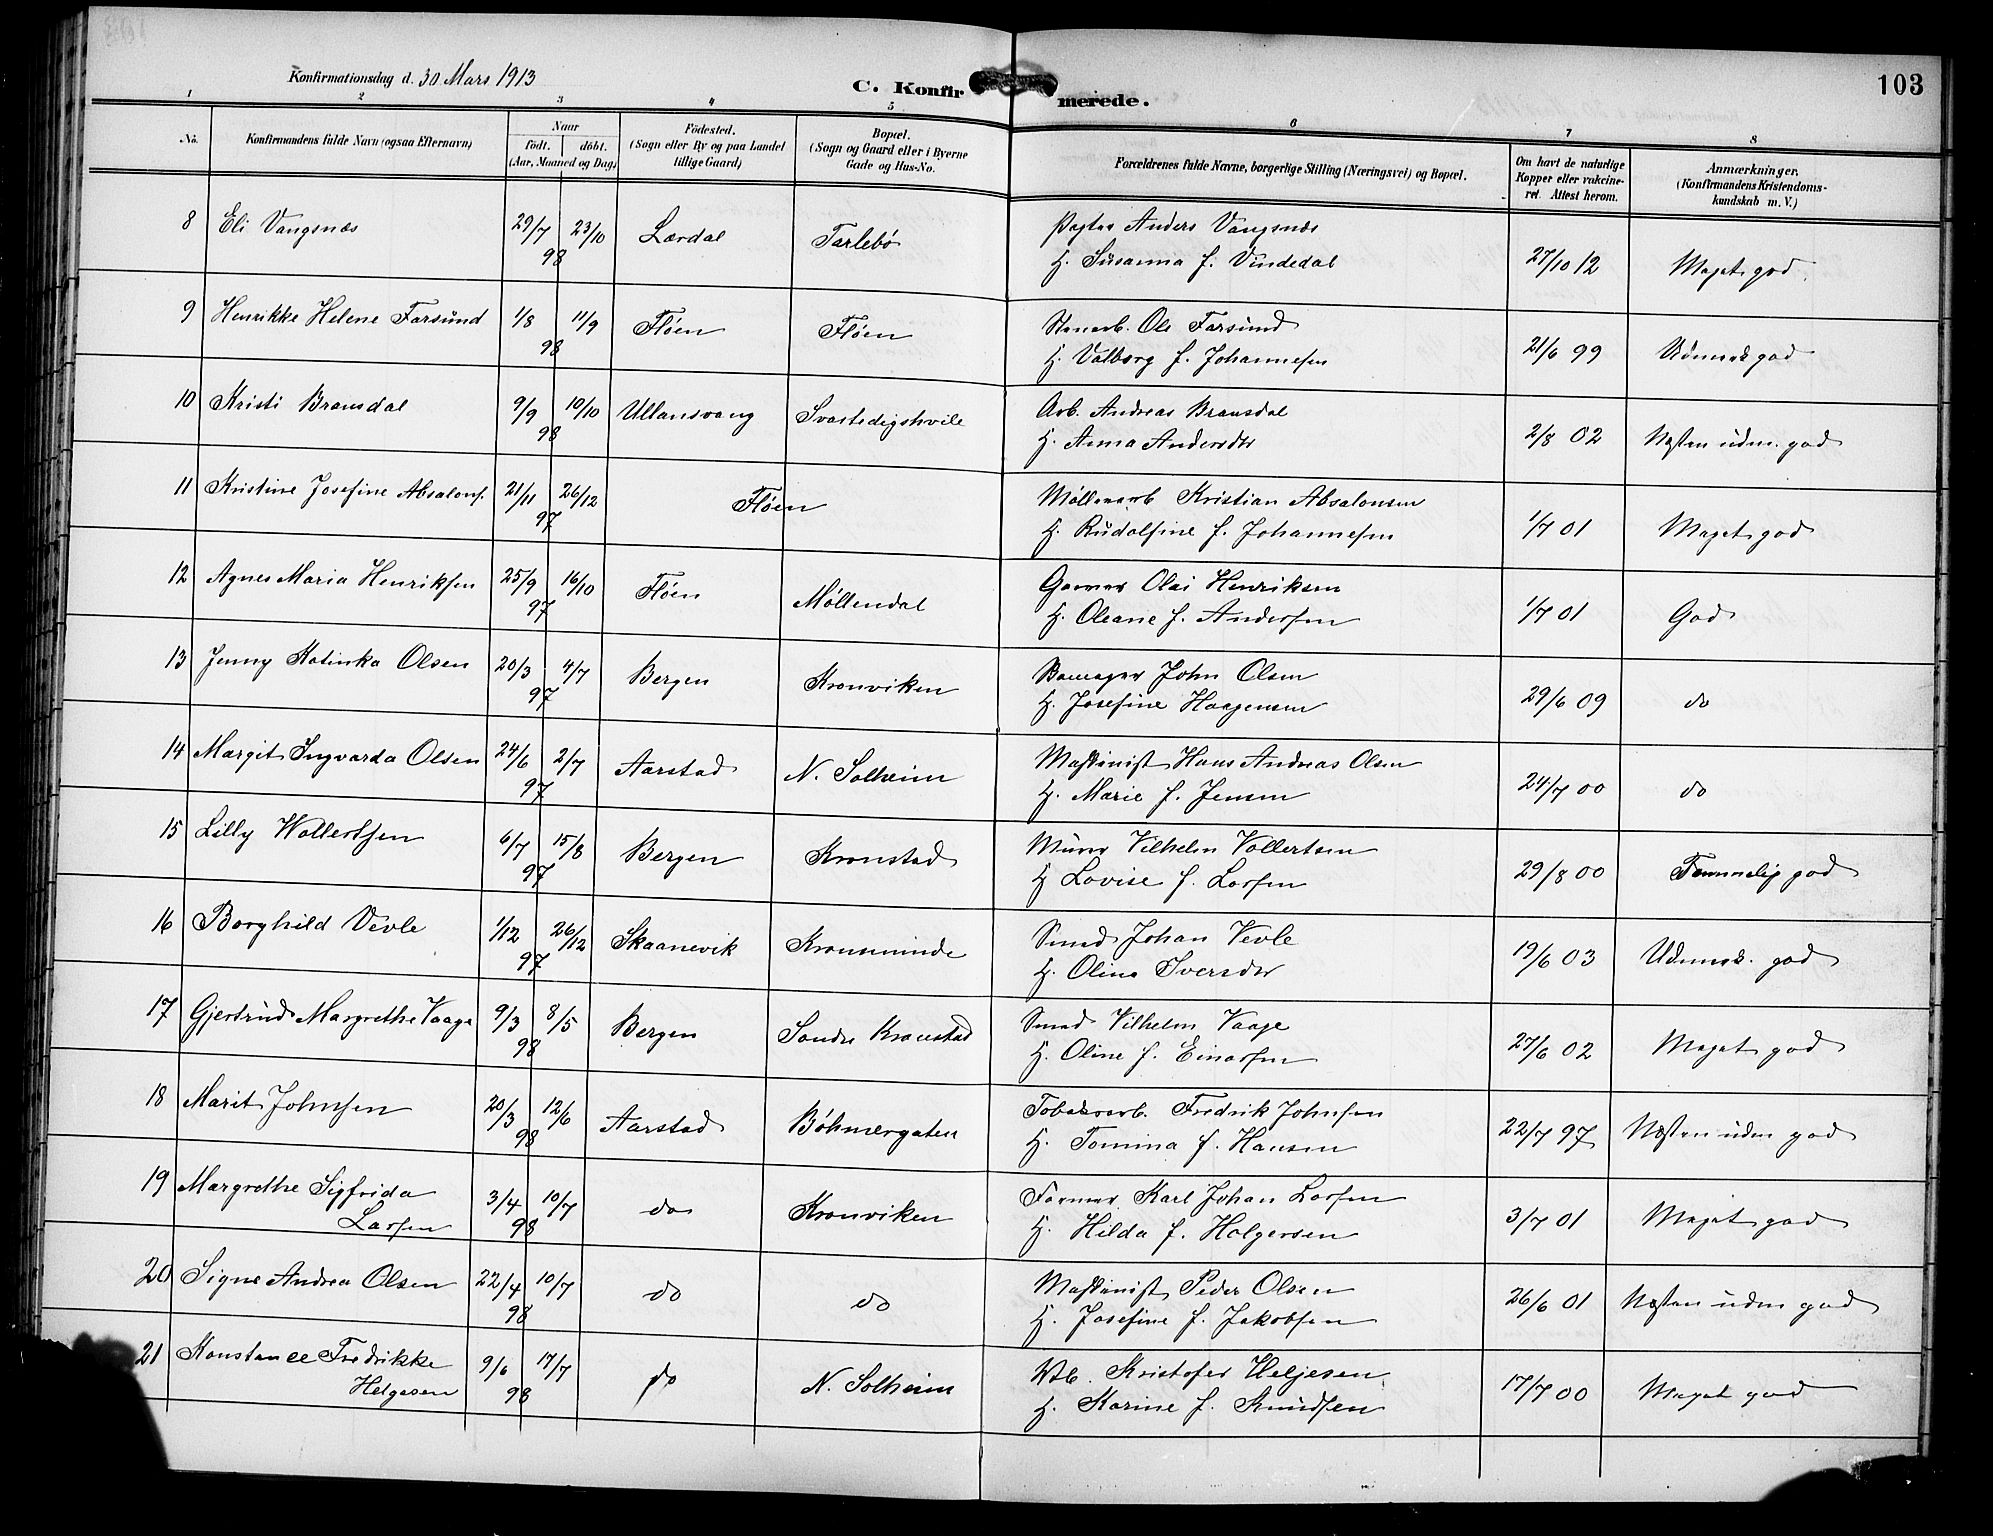 Konfirmationsdag d. 30 Mars 1913
C. Konfirmerede.
103
1 2 3 4 5 6 7 8
No.
Konfirmandens fulde Navn (ogsaa Efternavn)
Naar
födt. döbt.
(Aar, Maaned og Dag)
Födested.
(Sogn eller By og paa Landet
tillige Gaard)
Bopæl.
(Sogn og Gaard eller i Byerne
Gade og Hus-No.
Forældrenes fulde Navne, borgerlige Stilling (Næringsvei) og Bopæl.
Om havt de naturlige
Kopper eller vakcine-
ret. Attest herom.
Anmærkninger.
(Konfirmandens Kristendoms-
kundskab m. V.)
8 Eli Vangsnæs 29/7 23/10 98 Lærdal Tarlebø Anders Vangsnæs
H. Susanna f. Vindedal 27/10 12 Meget god
9 Henrikke Helene Farsund 1/8 11/9 98 Fløen Fløen Stenarb. Ole Farsund
H. Valborg f. Johannesen 21/6 99 Udmerk god
10 Kristi Bransdal 9/9 10/10 98 Ullansvang Svartedigshvile Arb. Andreas Bransdal
H. Anna Andersdtr 2/8 02 Næsten udm. god
11 Kristine Josefine Absalons. 21/11 26/12 97 Fløen Møllerarb Kristian Absalonsen
H. Rudolfine f. Johannesen 1/7 01 Meget god
12 Agnes Maria Henriksen 25/9 16/10 97 Fløen Møllendal Garver Olai Henriksen
H. Oleane f. Andersen 1/7 01 God
13 Jenny Katinka Olsen 20/3 4/7 97 Bergen Kronviken John Olsen
H. Josefine Haagensen 29/6 09 do
14 Margit Ingvarda Olsen 24/6 2/7 97 Aarstad N. Solheim Maskinist Hans Andreas Olsen
H. Marie f. Jensen 24/7 00 do
15 Lilly Wollertsen 6/7 15/8 97 Bergen Kronstad Murer Vilhelm Vollertsen
H Lovise f. Larsen 29/8 00 Temmelig god
16 Borghild Vevle 1/12 26/12 97 Skaanevik Kronsminde Smed Johan Vevle
H. Olina Iversdtr 19/6 03 Udmerk. god
17 Gjertrud Margrethe Vaage 9/3 8/5 98 Bergen Søndre Kronstad Smed Vilhelm Vaage
H. Oline f. Einarsen 27/6 02 Meget god
18 Marit Johnsen 20/3 12/6 98 Aarstad Bøhmergaten Tobaksarb. Fredrik Johnsen
H. Tomina f. Hansen 22/7 97 Næsten udm god
19 Margrethe Sigfrida
Larsen 3/4 10/7 98 do Kronviken Farver Karl Johan Larsen
H. Hilda f. Holgersen 3/7 01 Meget god
20 Signe Andrea Olsen 22/4 10/7 98 do do Maskinist Peder Olsen
H. Josefine f. Jakobsen 26/6 01 Næsten udm god
21 Konstance Fredrikke
Helgesen 9/6 17/7 98 do N. Solheim Kristofer Heljesen
H. Karine f. Knudsen 17/7 00 Meget god